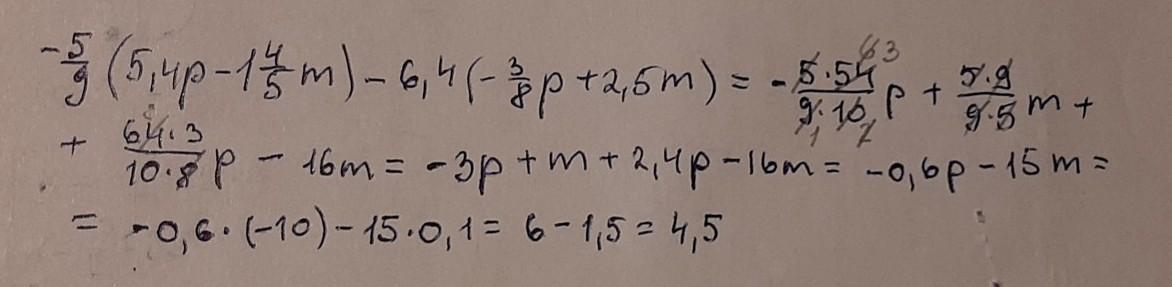 -5/9 (5,4p - 1 4/5 m) - 6,4 (-3/8 p + 2,5m) = - 5·54/9·10 p + 5·9/9·5 m +
+ 64·3/10·8 p - 16m = -3p + m + 2,4p - 16m = -0,6p - 15m =
= -0,6·(-10) - 15·0,1 = 6 - 1,5 = 4,5